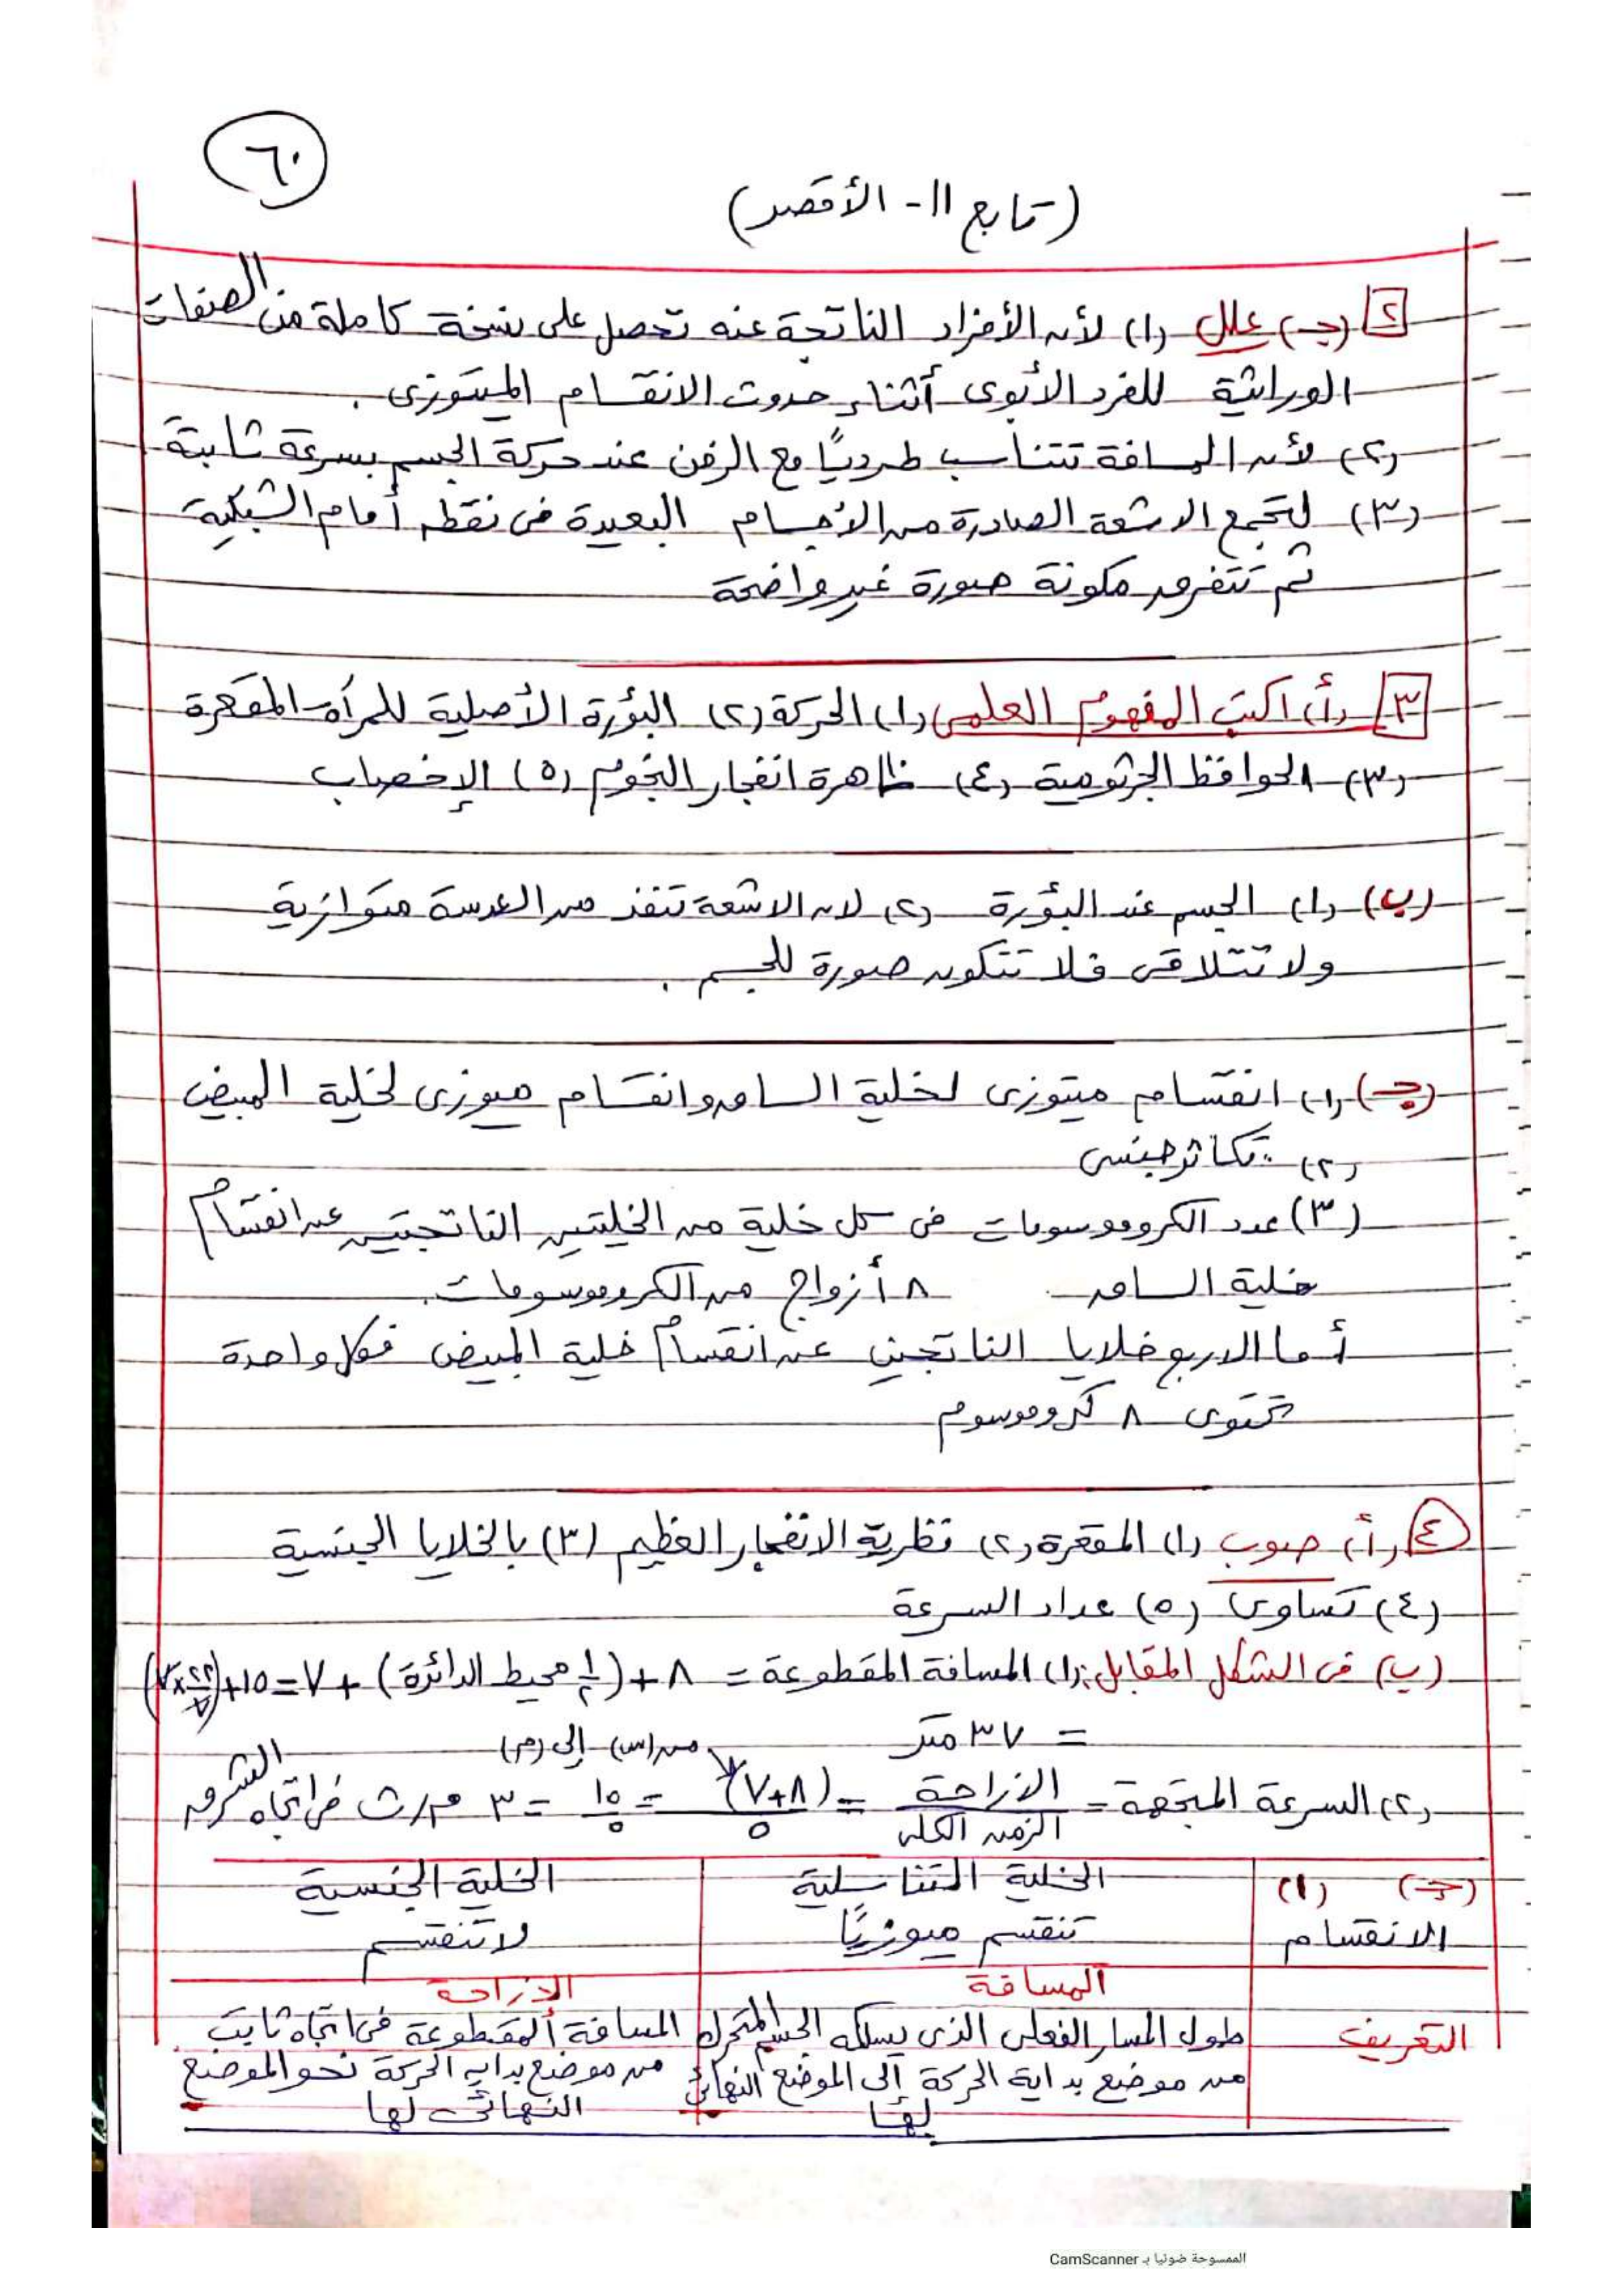 ٦٠
(تابع ١١- الأقصر)
٢ (جـ) علل (١) لأن الأفراد الناتجة عنه تحصل على نسخة كاملة من الصفات
الوراثية للفرد الأبوى أثناء حدوث الانقسام الميتوزى.
(٢) لأن المسافة تتناسب طرديًا مع الزمن عند حركة الجسم بسرعة ثابتة
(٣) لتجمع الاشعة الصادرة من الأجسام البعيدة فى نقطة أمام الشبكية
ثم تتفرق مكونة صورة غير واضحة
٣ (أ) اكتب المفهوم العلمى (١) الحركة (٢) البؤرة الأصلية للمرآة المقعرة
(٣) الحوافظ الجرثومية (٤) ظاهرة انفجار النجوم (٥) الإخصاب
(ب) (١) الجسم عند البؤرة (٢) لان الاشعة تنفذ من العدسة متوازية
ولا تتلاقى فلا تتكون صورة للجسم.
(جـ) (١) انقسام ميتوزى لخلية الساق وانقسام ميوزى لخلية المبيض
(٢) تكاثر جنسى
(٣) عدد الكروموسومات فى كل خلية من الخليتين الناتجتين عن انقسام
خلية الساق ٨ أزواج من الكروموسومات.
أما الاربع خلايا الناتجين عن انقسام خلية المبيض فكل واحدة
تحتوى ٨ كروموسوم
٤ (أ) صوب (١) المقعرة (٢) نظرية الانفجار العظيم (٣) بالخلايا الجنسية
(٤) تساوى (٥) عداد السرعة
(ب) فى الشكل المقابل: (١) المسافة المقطوعة = ٨ + (١/٢ محيط الدائرة) + ٧ = ١٥ + (٢٢/٧ × ٧)
= ٣٧ متر
من (س) إلى (ص)
(٢) السرعة المتجهة = الازاحة / الزمن الكلى = (٨+٧) / ٥ = ١٥ / ٥ = ٣ م/ث فى اتجاه الشرق
(جـ) (١) الخلية التناسلية الخلية الجنسية
الانقسام تنقسم ميوزيًا لا تنقسم
المسافة الازاحة
التعريف طول المسار الفعلى الذى يسلكه الجسم المتحرك المسافة المقطوعة فى اتجاه ثابت
من موضع بداية الحركة إلى الموضع النهائى من موضع بداية الحركة نحو الموضع
لها النهائى لها
الممسوحة ضوئيا بـ CamScanner